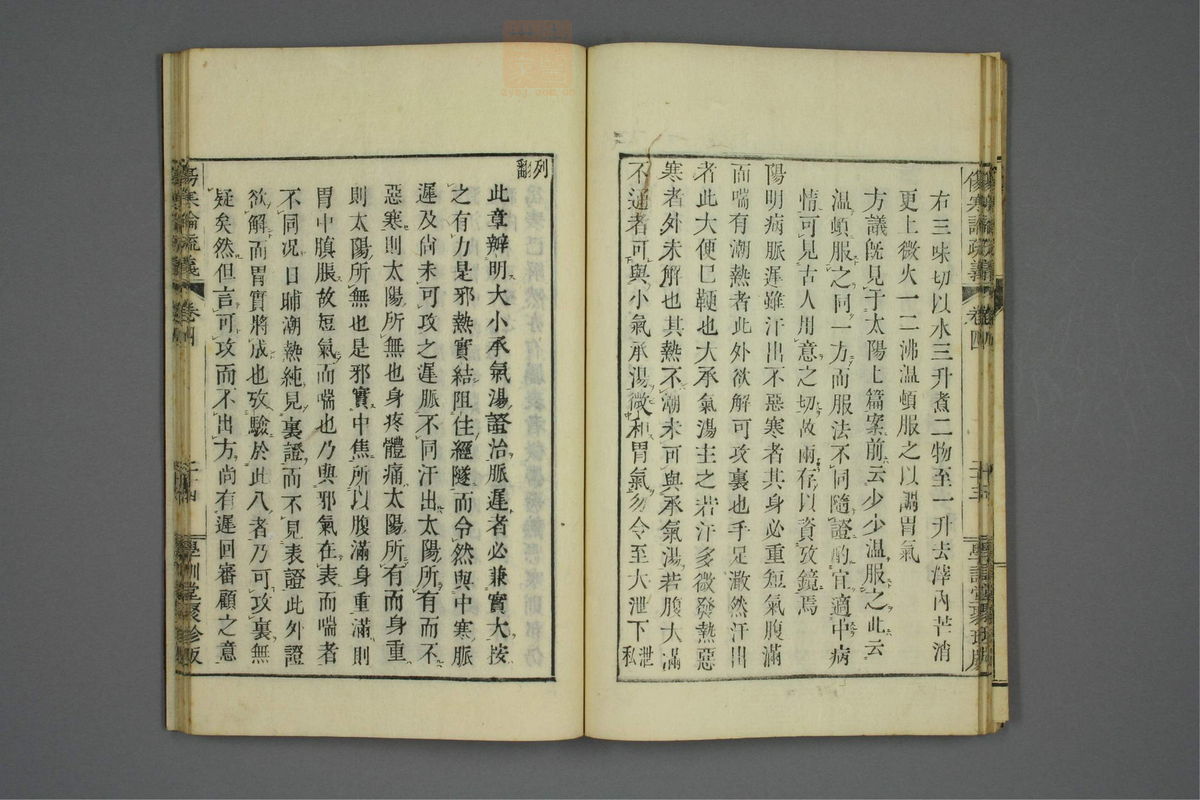 右三味切以水三升煮二物至一升去滓內芒消
更上微火一二沸溫頓服之以調胃氣
方議既見于太陽上篇案前云少少溫服之此云
溫頓服之同一方而服法不同隨證酌宜適中病
情可見古人用意之切故兩存以資攷鏡焉
陽明病脈遲雖汗出不惡寒者其身必重短氣腹滿
而喘有潮熱者此外欲解可攻裏也手足濈然汗出
者此大便已鞕也大承氣湯主之若汗多微發熱惡
寒者外未解也其熱不潮未可與承氣湯若腹大滿
不通者可與小氣承湯微和胃氣勿令至大泄下泄私
列翻
此章辨明大小承氣湯證治脈遲者必兼實大按
之有力是邪熱實結阻住經隧而令然與中寒脈
遲及尚未可攻之遲脈不同汗出太陽所有而不
惡寒則太陽所無也身疼體痛太陽所有而身重
則太陽所無也是邪實中焦所以腹滿身重滿則
胃中䐜脹故短氣而喘也乃與邪氣在表而喘者
不同況日晡潮熱純見裏證而不見表證此外證
欲解而胃實將成也攷驗於此八者乃可攻裏無
疑矣然但言可攻而不出方尚有遲回審顧之意
傷寒論疏義 卷四 二十四 學訓堂聚珍版
傷寒論疏義 卷四 二十三 學訓堂聚珍版